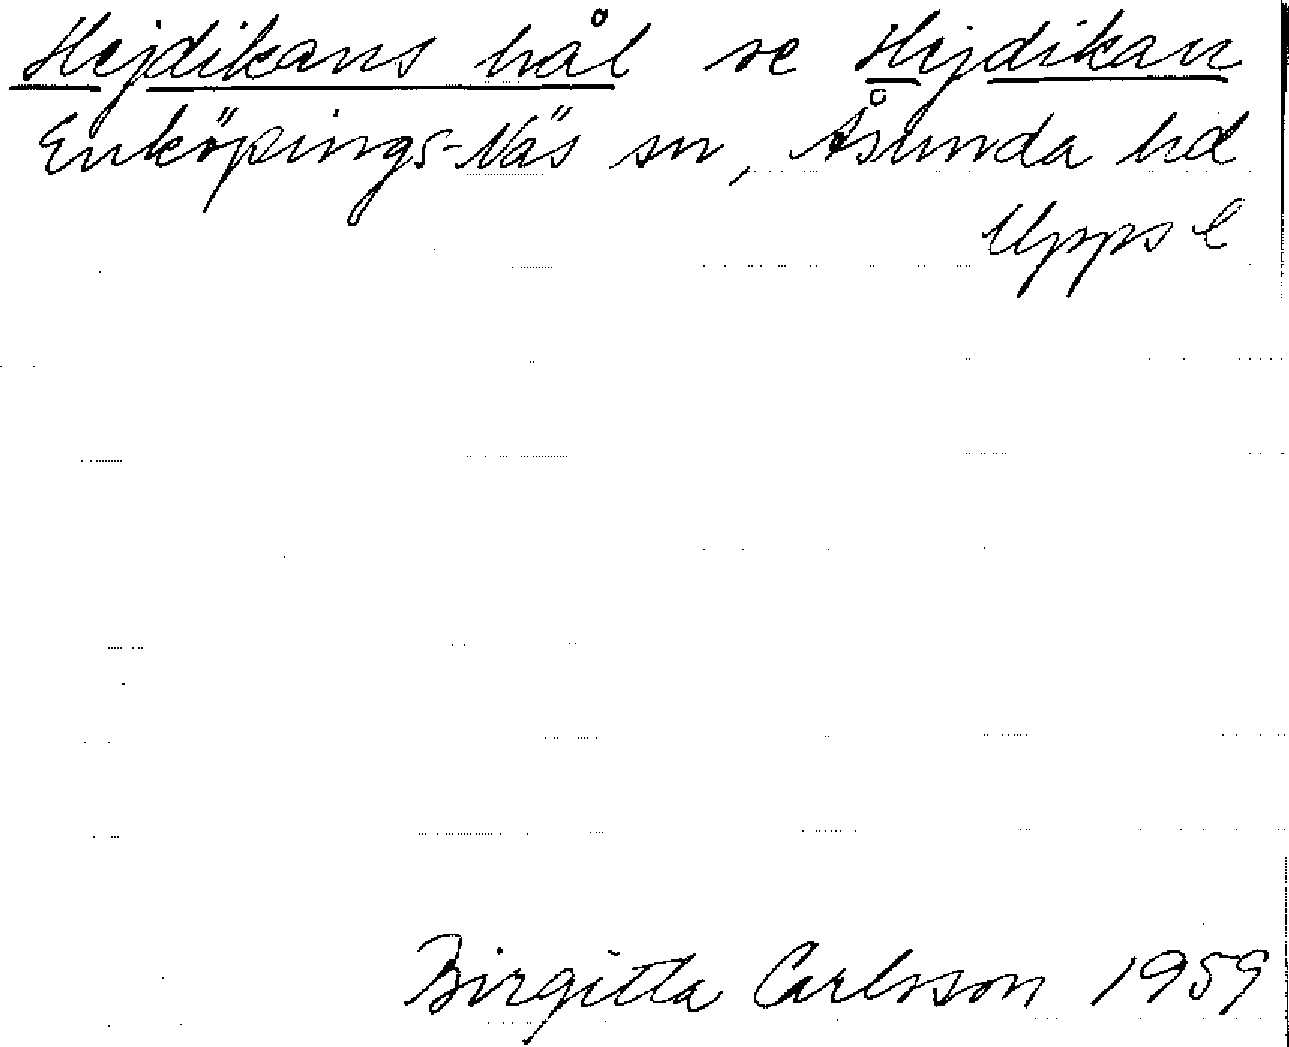 Hejdikans hål se Hejdikan
Enköpings-Näs sn, Åsunda hd
Upps l
Birgitta Carlsson 1959